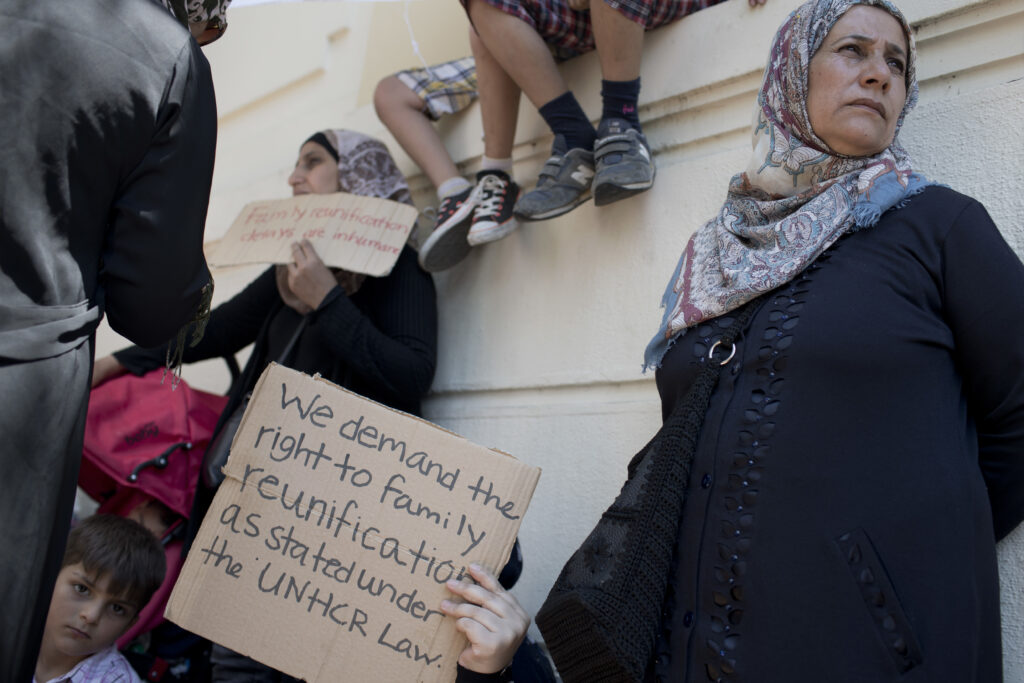 Family reunification
delays are inhumane
We demand the
right to family
reunification
as stated under
the UNHCR Law.